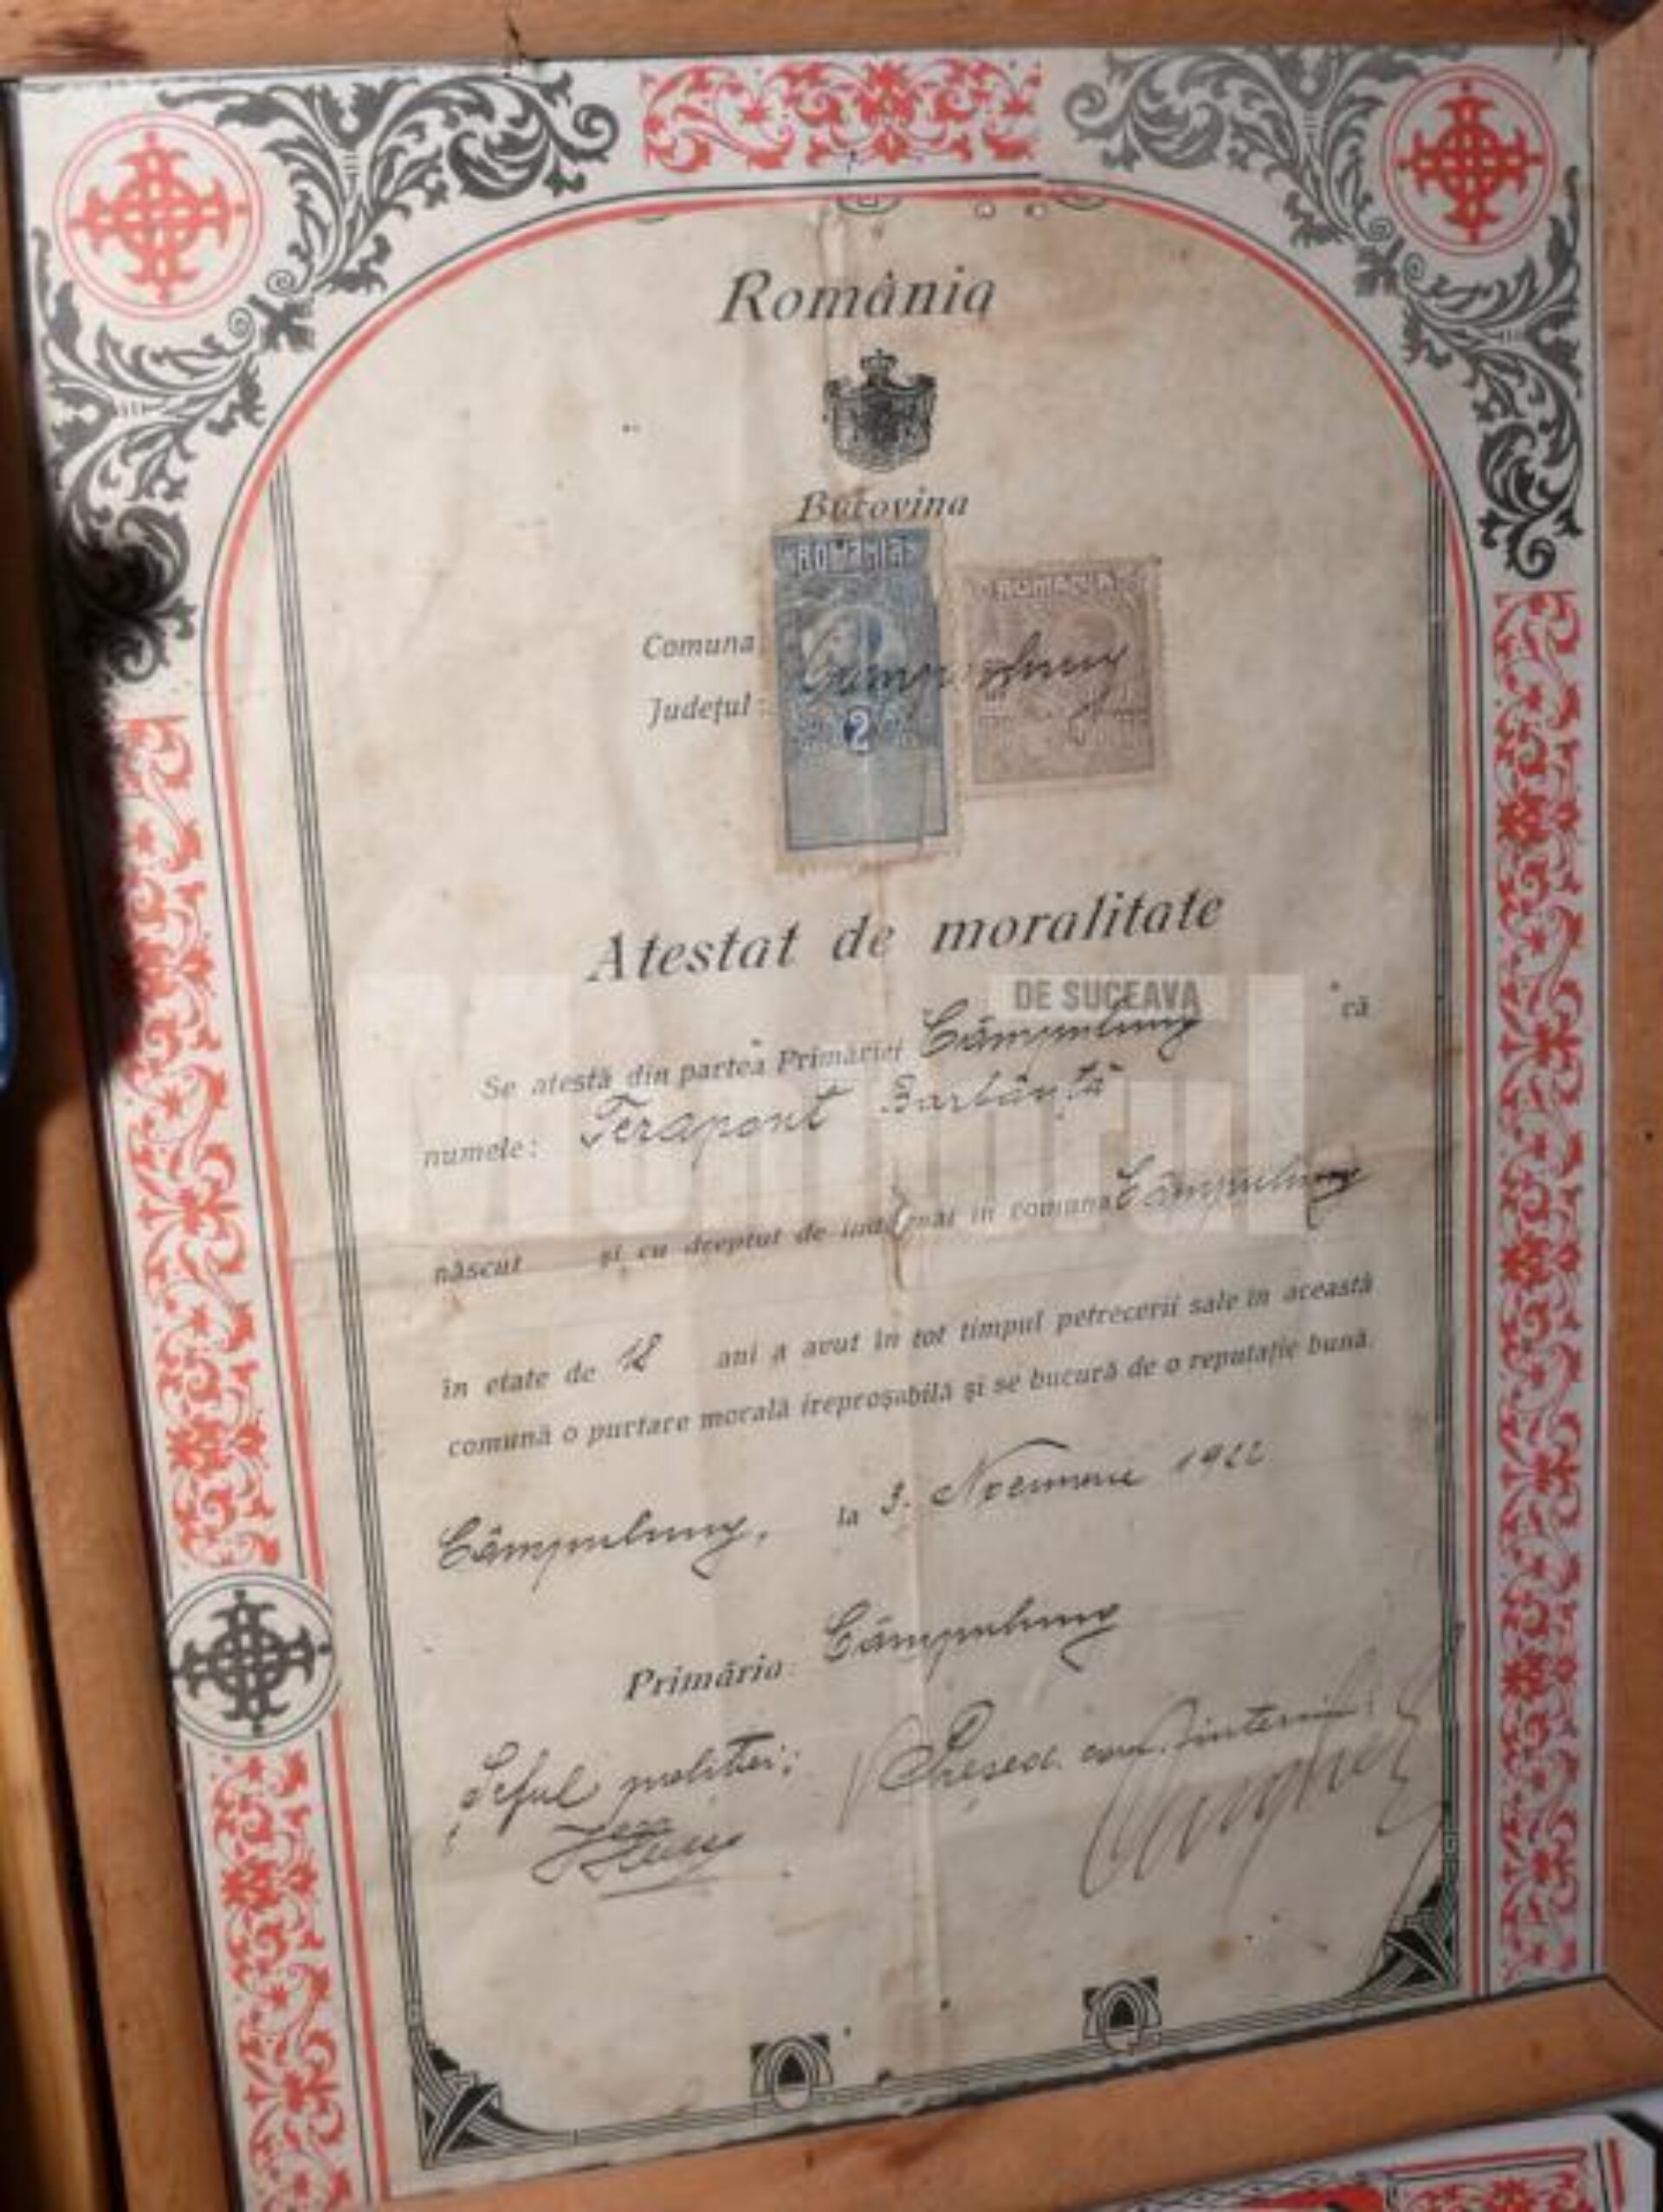 România
Bucovina
ROMANIA
ROMANIA
Comuna: Câmpulung
Județul:
2
Atestat de moralitate
DE SUCEAVA
Monitorul
Se atestă din partea Primăriei Câmpulung că
numele: Terapont Barbăntă
născut și cu dreptul de indigenat în comuna Câmpulung
în etate de 18 ani a avut în tot timpul petrecerii sale în această
comună o purtare morală ireproșabilă și se bucură de o reputație bună.
Câmpulung, la 3. Noemvrie 1922
Primăria: Câmpulung
Șeful poliției: Președ. com. interim.: